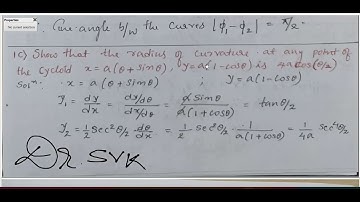 Properties
No current selection
Cure-angle b/w the curves |ϕ₁-ϕ₂| = π/2
1c) Show that the radius of curvature at any point of
the cycloid x = a(θ+sinθ), y = a(1-cosθ) is 4a cos(θ/2)
Solⁿ: x = a(θ+sinθ) ; y = a(1-cosθ)
y₁ = dy/dx = (dy/dθ)/(dx/dθ) = a sinθ/a(1+cosθ) = tan θ/2
y₂ = 1/2 sec² θ/2 dθ/dx = 1/2 sec² θ/2 · 1/a(1+cosθ) = 1/4a sec⁴ θ/2
Dr. SVK